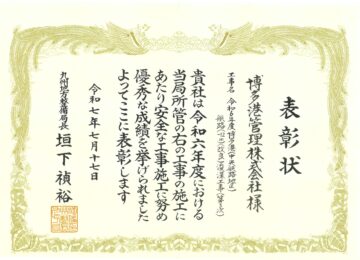 表彰状
博多港管理株式会社 様
工事名 令和6年度博多港(中央航路地区)
航路(-12m)改良
貴社は令和六年度における
当局所管の右の工事の施工に
あたり安全な工事施工に努め
優秀な成績を挙げられました
よってここに表彰します
令和七年七月十七日
九州地方整備局長
垣下禎裕